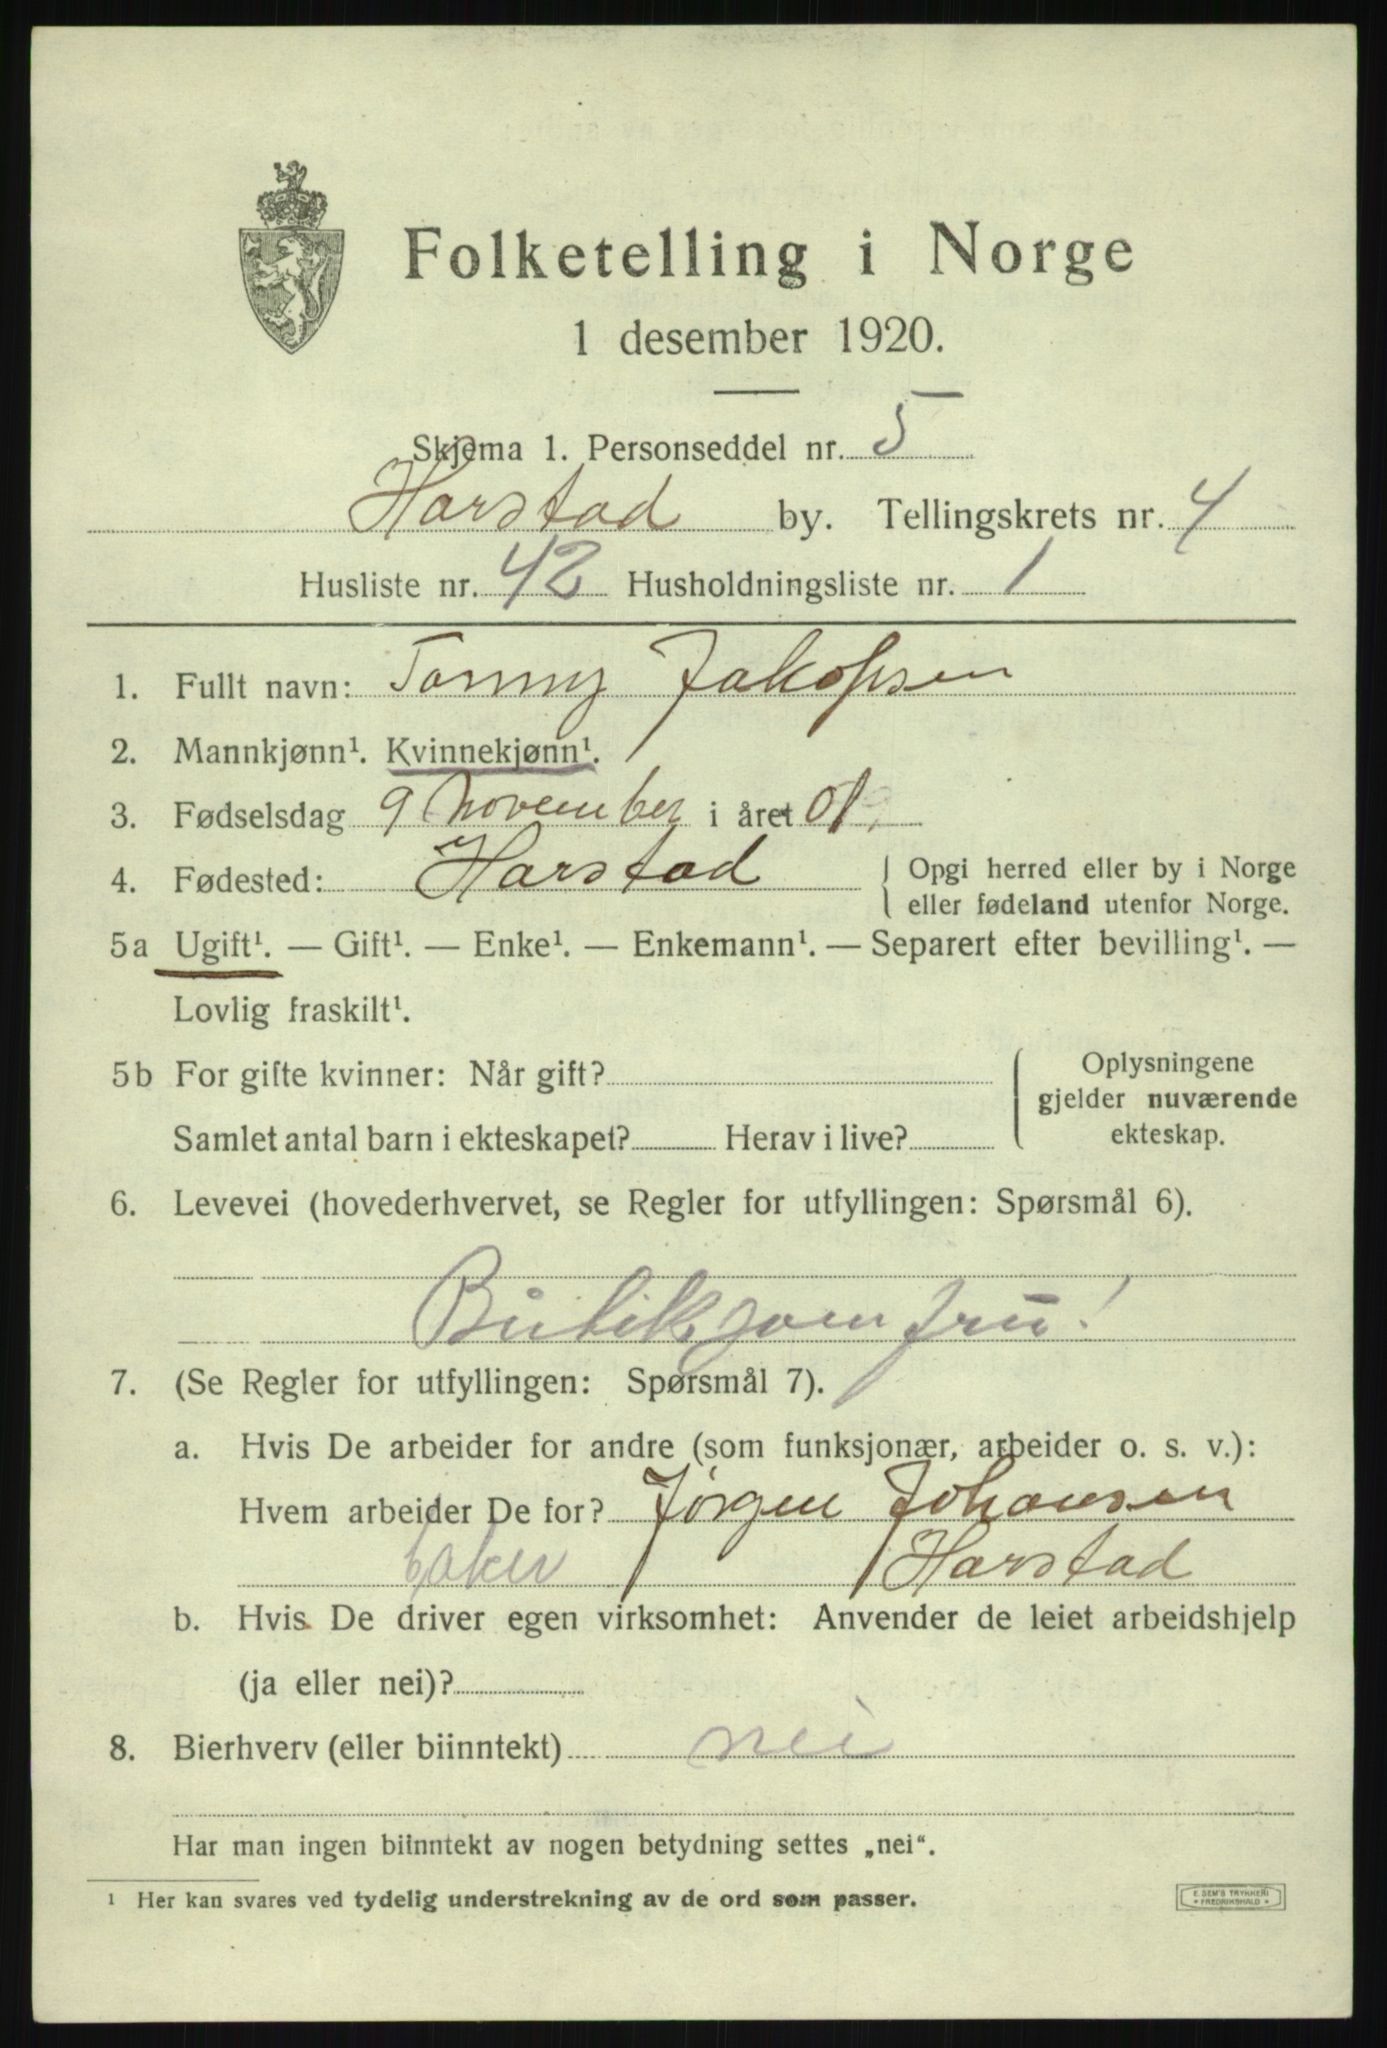 Folketelling i Norge
1 desember 1920.
Skjema 1. Personseddel nr. 5
Harstad by. Tellingskrets nr. 4
Husliste nr. 42 Husholdningsliste nr. 1
1. Fullt navn: Tonny Jakobsen
2. Mannkjønn¹. Kvinnekjønn¹.
3. Fødselsdag 9 november i året 01
4. Fødested: Harstad { Opgi herred eller by i Norge
eller fødeland utenfor Norge.
5a Ugift¹. — Gift¹. — Enke¹. — Enkemann¹. — Separert efter bevilling¹. —
Lovlig fraskilt¹.
5b For gifte kvinner: Når gift?
Samlet antal barn i ekteskapet? Herav i live?
{ Oplysningene
gjelder nuværende
ekteskap.
6. Levevei (hovederhvervet, se Regler for utfyllingen: Spørsmål 6).
Butiksjomfru!
7. (Se Regler for utfyllingen: Spørsmål 7).
a. Hvis De arbeider for andre (som funksjonær, arbeider o. s. v.):
Hvem arbeider De for? Jørgen Johansen
baker Harstad
b. Hvis De driver egen virksomhet: Anvender de leiet arbeidshjelp
(ja eller nei)?
8. Bierhverv (eller biinntekt) nei
Har man ingen biinntekt av nogen betydning settes „nei“.
¹ Her kan svares ved tydelig understrekning av de ord som passer.
E. SEM'S TRYKKERI
* FREDRIKSHALD *